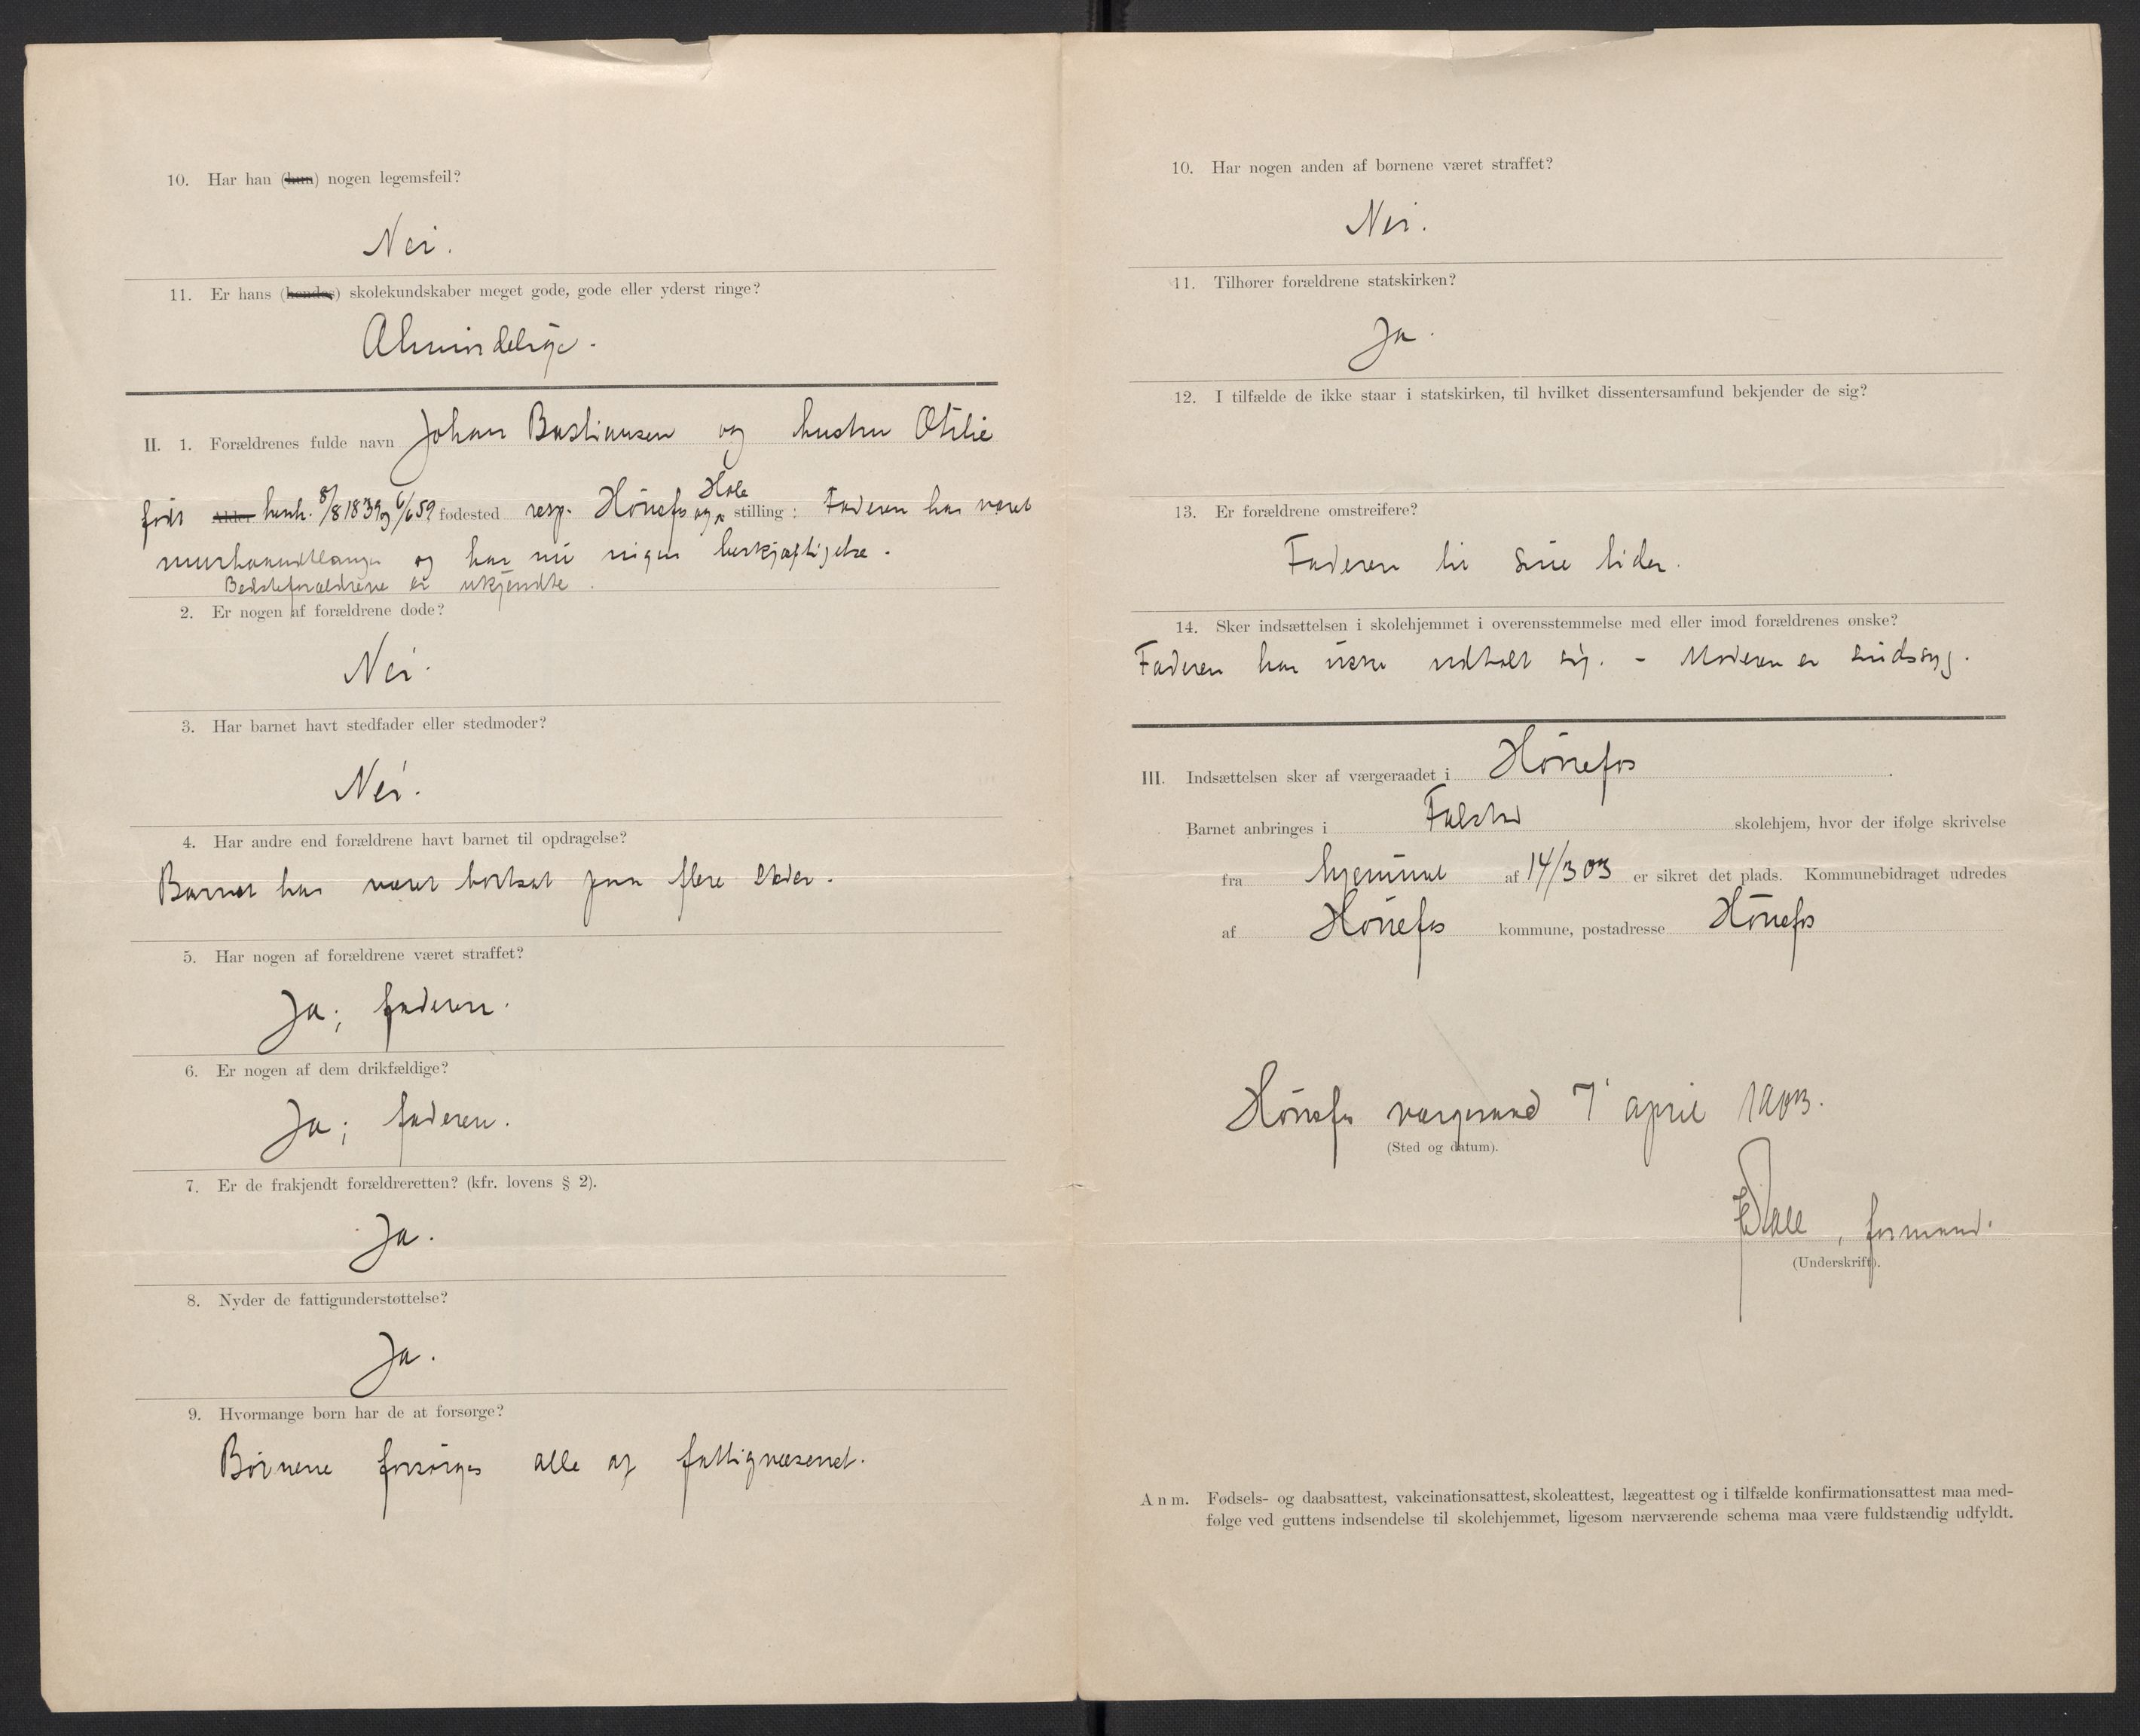 10. Har han (hun) nogen legemsfeil?
Nei.
11. Er hans (hendes) skolekundskaber meget gode, gode eller yderst ringe?
Almindelige.
II. 1. Forældrenes fulde navn Johan Bastiansen og hustru Otilie
født Alder henh. 8/8 1839 og 6/6 59 fødested resp. Hönefos og Hole stilling: Faderen har været
murhaandtlanger og har nu ingen beskjæftigelse.
Bedsteforældrene er ukjendte.
2. Er nogen af forældrene døde?
Nei.
3. Har barnet havt stedfader eller stedmoder?
Nei.
4. Har andre end forældrene havt barnet til opdragelse?
Barnet har været bortsat paa flere steder.
5. Har nogen af forældrene været straffet?
Ja; faderen.
6. Er nogen af dem drikfældige?
Ja; faderen.
7. Er de frakjendt forældreretten? (kfr. lovens § 2).
Ja.
8. Nyder de fattigunderstøttelse?
Ja.
9. Hvormange børn har de at forsørge?
Börnene forsörges alle af fattigvæsenet.
10. Har nogen anden af børnene været straffet?
Nei.
11. Tilhører forældrene statskirken?
Ja.
12. I tilfælde de ikke staar i statskirken, til hvilket dissentersamfund bekjender de sig?
13. Er forældrene omstreifere?
Faderen til sine tider.
14. Sker indsættelsen i skolehjemmet i overensstemmelse med eller imod forældrenes ønske?
Faderen har ikke udtalt sig. - Moderen er sindssyg.
III. Indsættelsen sker af værgeraadet i Hönefos
Barnet anbringes i Falstad skolehjem, hvor der ifølge skrivelse
fra hjemmet af 14/3 03 er sikret det plads. Kommunebidraget udredes
af Hönefos kommune, postadresse Hönefos
Hönefos værgeraad 7 april 1903.
(Sted og datum).
Dall, formand.
(Underskrift).
Anm. Fødsels- og daabsattest, vakcinationsattest, skoleattest, lægeattest og i tilfælde konfirmationsattest maa med-
følge ved guttens indsendelse til skolehjemmet, ligesom nærværende schema maa være fuldstændig udfyldt.